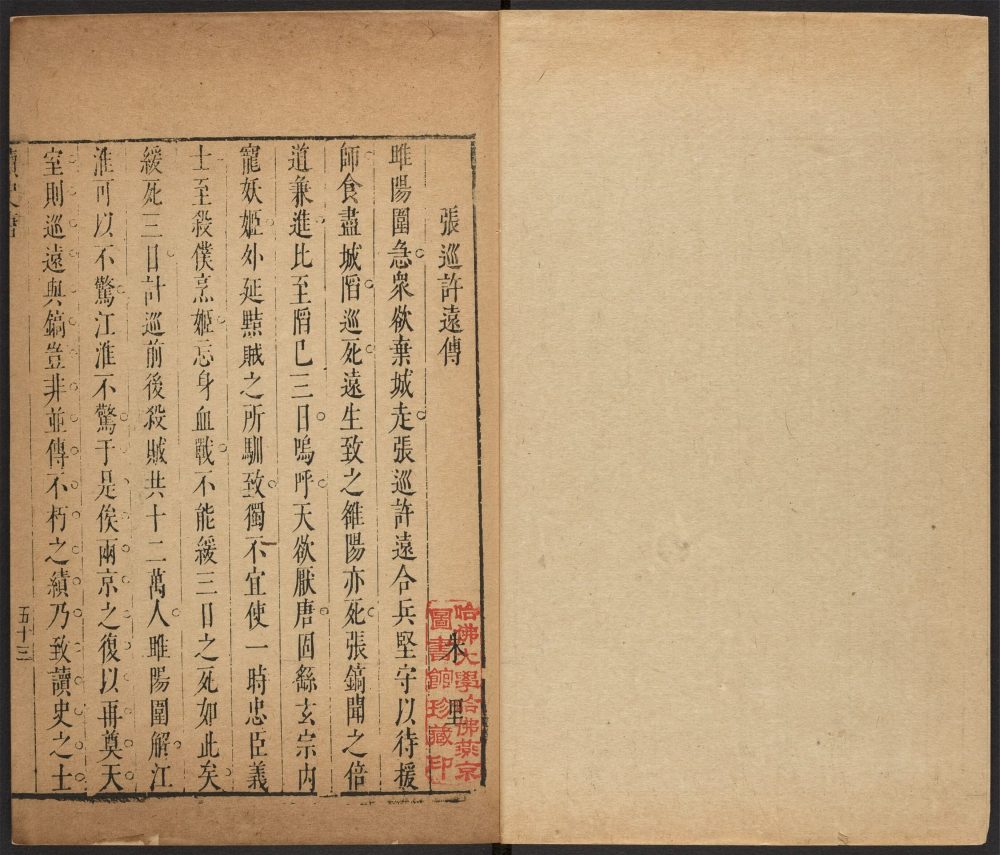 張巡許遠傳
朱里
睢陽圍急衆欲棄城走張巡許遠合兵堅守以待援
師食盡城陷巡死遠生致之雒陽亦死張鎬聞之倍
道兼進比至陷已三日嗚呼天欲厭唐固繇玄宗内
寵妖姬外延黠賊之所馴致獨不宜使一時忠臣義
士至殺僕烹姬忘身血戰不能緩三日之死如此矣
緩死三日計巡前後殺賊共十二萬人睢陽圍解江
淮可以不驚江淮不驚于是俟兩京之復以再奠天
室則巡遠與鎬豈非並傳不朽之績乃致讀史之士
五十三
哈佛大學哈佛燕京
圖書館珍藏印